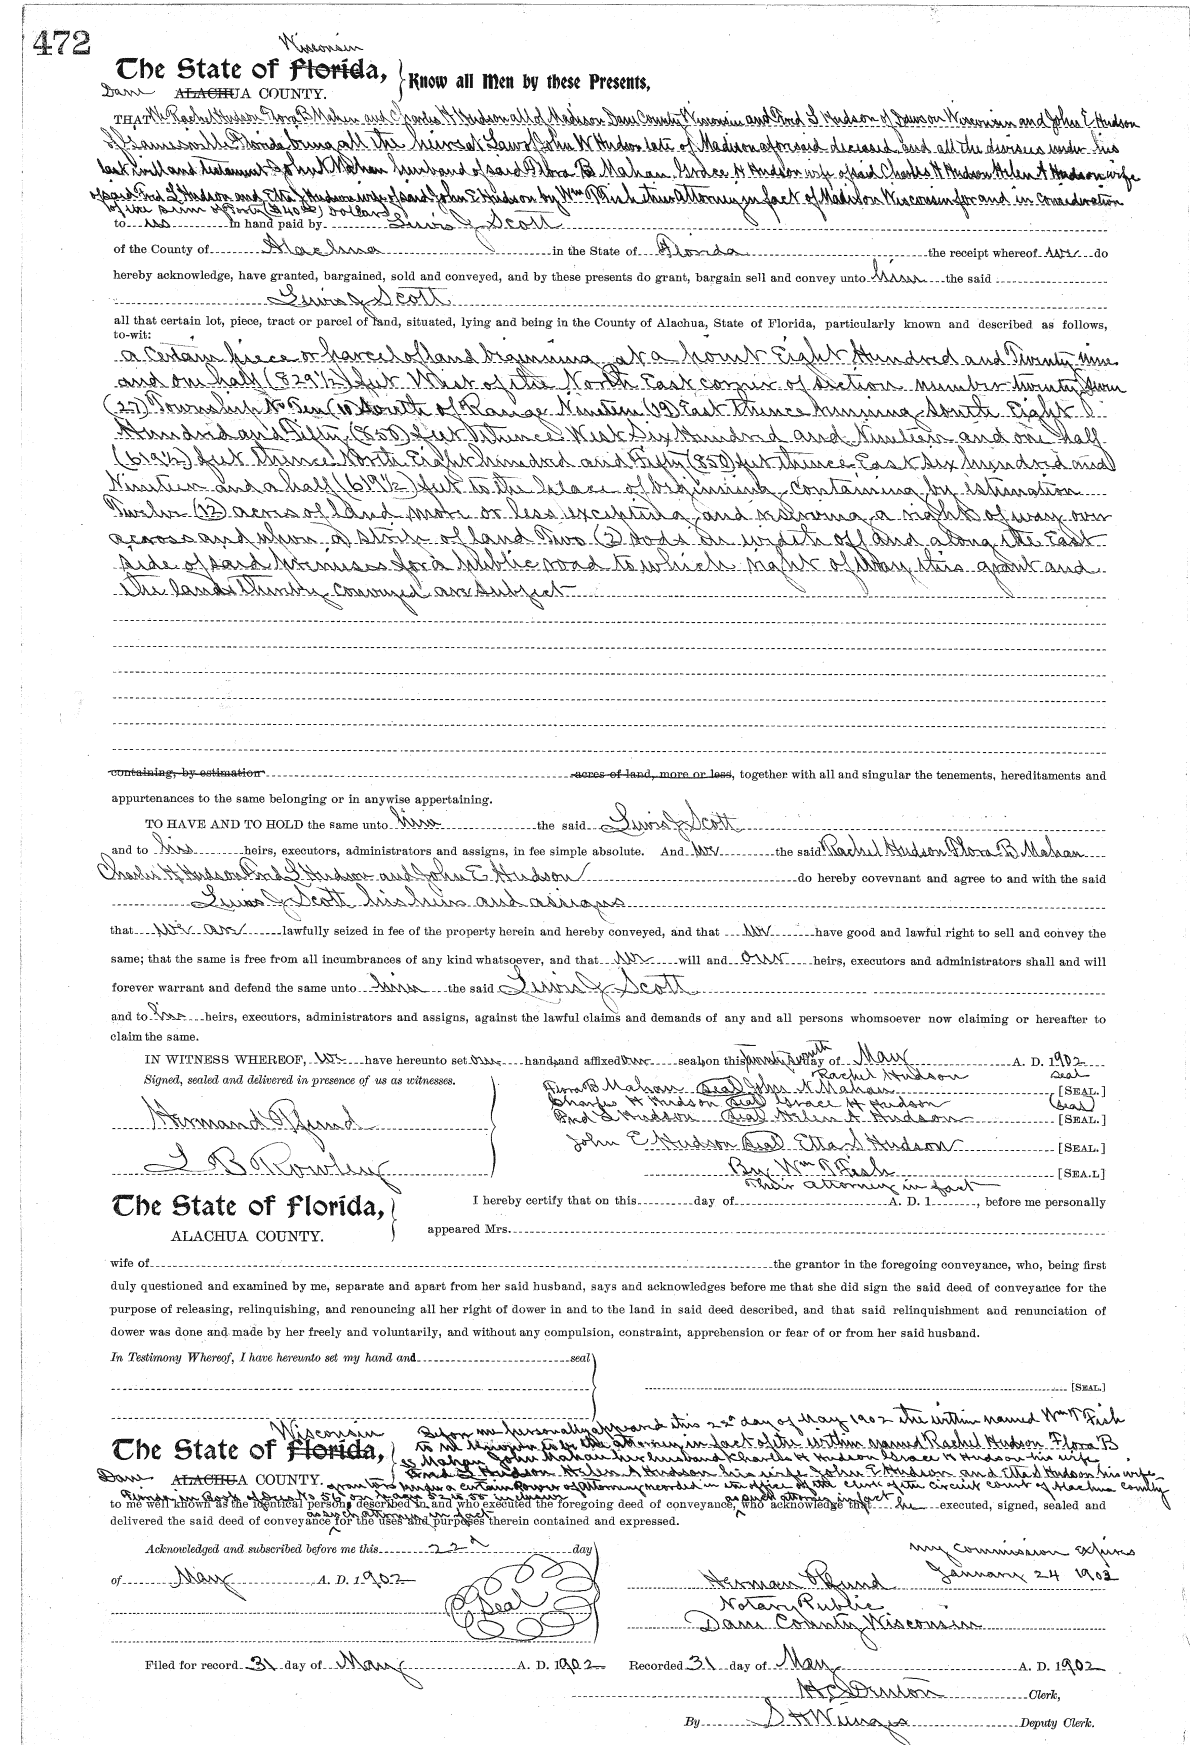 472
Wisconsin
The State of Florida,
Know all Men by these Presents,
Dane ALACHUA COUNTY.
THAT We Rachel Hudson Flora B Mahan and Charles H Hudson all of Madison Dane County Wisconsin and Fred L Hudson of Dawson Wisconsin and John E Hudson
of Gainesville Florida being all the heirs at Law of John W Hudson late of Madison aforesaid deceased and all the devisees under his
last will and testament John N Mahan husband of said Flora B Mahan Grace H Hudson wife of said Charles H Hudson Helen A Hudson wife
of said Fred L Hudson and Etta S Hudson wife of said John E Hudson by Wm T Fish their Attorney in fact of Madison Wisconsin for and in Consideration
of the sum of Forty ($40) Dollars
to us in hand paid by Lewis J Scott
of the County of Alachua in the State of Florida the receipt whereof we do
hereby acknowledge, have granted, bargained, sold and conveyed, and by these presents do grant, bargain sell and convey unto him the said
Lewis J Scott
all that certain lot, piece, tract or parcel of land, situated, lying and being in the County of Alachua, State of Florida, particularly known and described as follows,
to-wit:
a certain piece or parcel of land beginning at a point Eight Hundred and Twenty nine
and one half (829½) feet West of the North East corner of section number twenty seven
(27) Township No Ten (10) South of Range Nineteen (19) East thence running South Eight
Hundred and Fifty (850) feet thence West Six Hundred and Nineteen and one half
(619½) feet thence North Eight hundred and Fifty (850) feet thence East Six hundred and
Nineteen and a half (619½) feet to the place of beginning containing by estimation
Twelve (12) acres of land more or less excepting and reserving a right of way over
across and upon a strip of land Two (2) rods in width off and along the East
side of said premises for a public road to which right of way this grant and
the lands thereby conveyed are subject
containing, by estimation acres of land, more or less, together with all and singular the tenements, hereditaments and
appurtenances to the same belonging or in anywise appertaining.
TO HAVE AND TO HOLD the same unto him the said Lewis J Scott
and to his heirs, executors, administrators and assigns, in fee simple absolute. And we the said Rachel Hudson Flora B Mahan
Charles H Hudson Fred L Hudson and John E Hudson do hereby covevnant and agree to and with the said
Lewis J Scott his heirs and assigns
that we are lawfully seized in fee of the property herein and hereby conveyed, and that we have good and lawful right to sell and convey the
same; that the same is free from all incumbrances of any kind whatsoever, and that we will and our heirs, executors and administrators shall and will
forever warrant and defend the same unto him the said Lewis J Scott
and to his heirs, executors, administrators and assigns, against the lawful claims and demands of any and all persons whomsoever now claiming or hereafter to
claim the same.
IN WITNESS WHEREOF, we have hereunto set our hands and affixed our seals, on this day of May A. D. 1902
Signed, sealed and delivered in presence of us as witnesses.
Rachel Hudson seal
Flora B Mahan seal John N Mahan [SEAL.]
Charles H Hudson seal Grace H Hudson (seal)
Fred L Hudson seal Helen A Hudson [SEAL.]
John E Hudson seal Etta S Hudson [SEAL.]
Hermand Pfund
L B Rowley
By Wm T Fish [SEAL]
Their attorney in fact
The State of Florida,
ALACHUA COUNTY.
I hereby certify that on this day of A. D. 1 , before me personally
appeared Mrs.
wife of the grantor in the foregoing conveyance, who, being first
duly questioned and examined by me, separate and apart from her said husband, says and acknowledges before me that she did sign the said deed of conveyance for the
purpose of releasing, relinquishing, and renouncing all her right of dower in and to the land in said deed described, and that said relinquishment and renunciation of
dower was done and made by her freely and voluntarily, and without any compulsion, constraint, apprehension or fear of or from her said husband.
In Testimony Whereof, I have hereunto set my hand and seal
[SEAL.]
Wisconsin
The State of Florida,
Dane ALACHUA COUNTY.
Before me personally appeared this 22d day of May 1902 the within named Wm T Fish
to me known to be the attorney in fact of the within named Rachel Hudson Flora B
Mahan John Mahan her husband Charles H Hudson Grace H Hudson his wife
Fred L Hudson Helen A Hudson his wife John E Hudson and Etta S Hudson his wife
grantors under a certain Power of Attorney recorded in the office of the clerk of the circuit court of Alachua County
to me well known as the identical person described in and who executed the foregoing deed of conveyance, who as such attorney in fact acknowledge that he executed, signed, sealed and
delivered the said deed of conveyance as such attorney in fact for the uses and purposes therein contained and expressed.
Acknowledged and subscribed before me this 22d day
of May A. D. 1902
Seal
my commission expires
January 24 1903
Herman Pfund
Notary Public
Dane County Wisconsin
Filed for record 31 day of May A. D. 1902 Recorded 31 day of May A. D. 1902
H C Denton Clerk,
By S H Wienges Deputy Clerk.